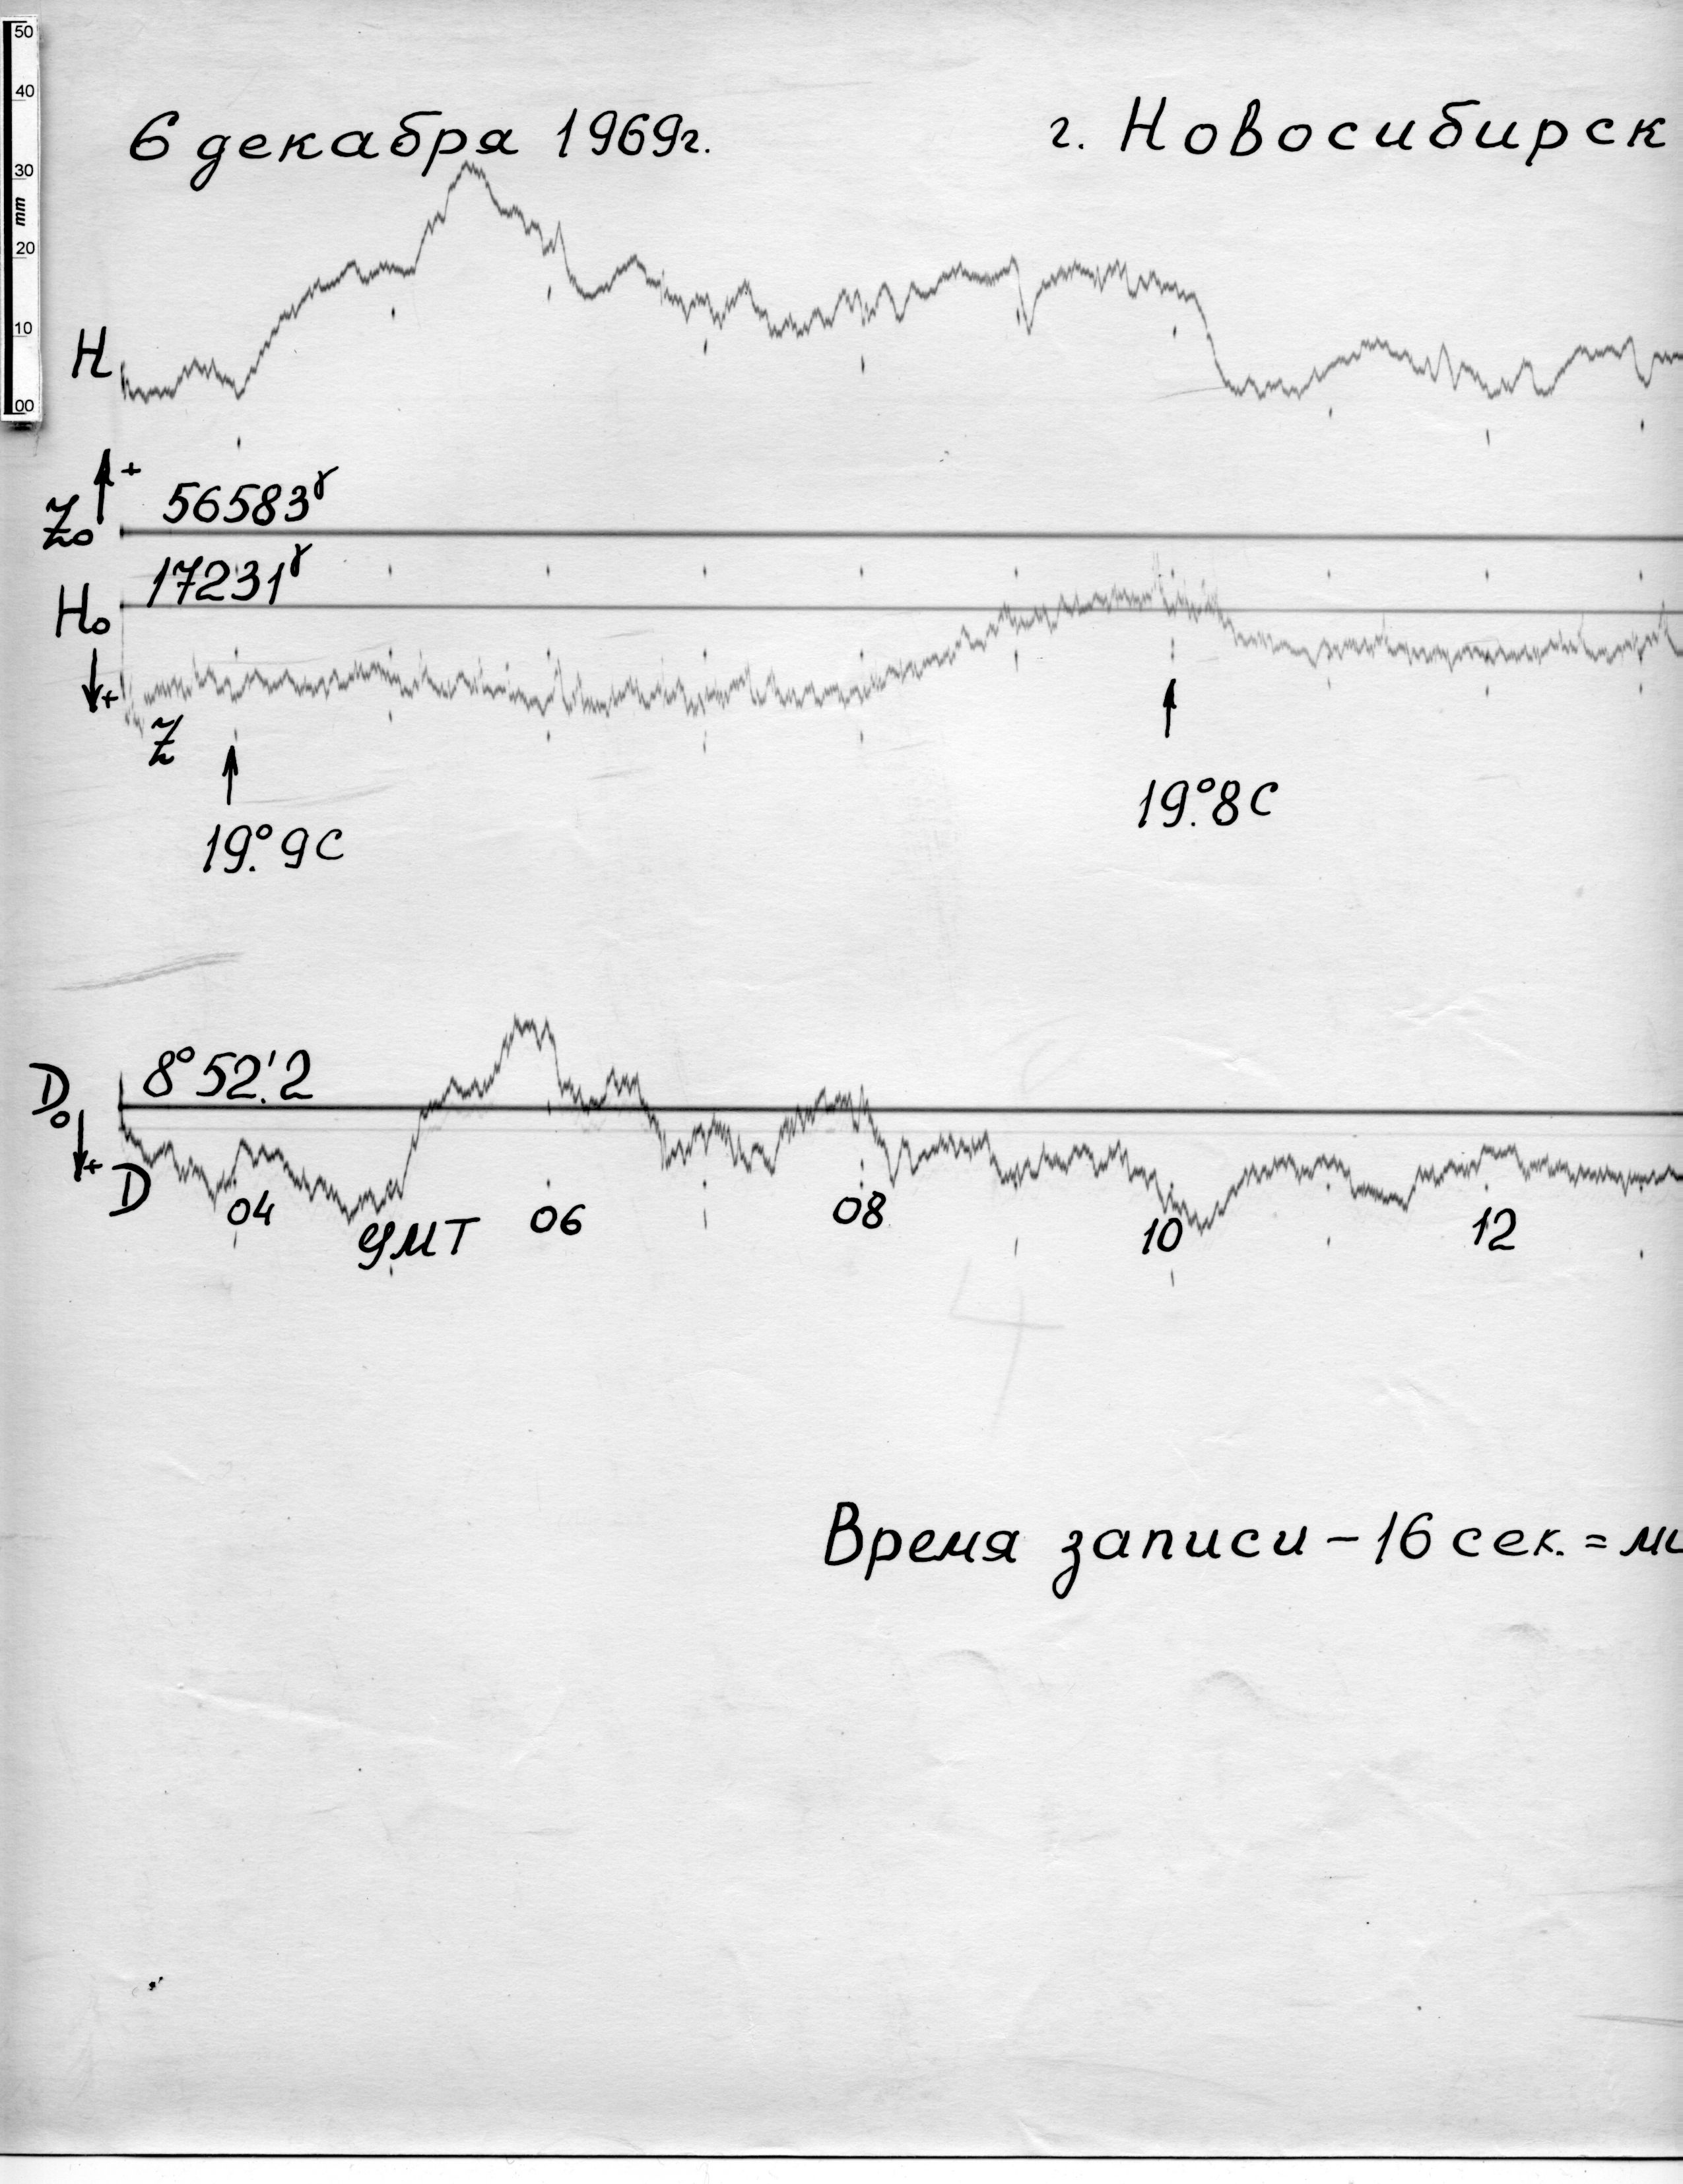 50
40
30
mm
20
10
00
6 декабря 1969г. г. Новосибирск
H
+
Z₀ 56583γ
H₀ 17231γ
+
Z
19°.9C
19°.8C
D₀ 8°52.'2
+
D
04 06 08 10 12
GMT
Время записи – 16 сек. =